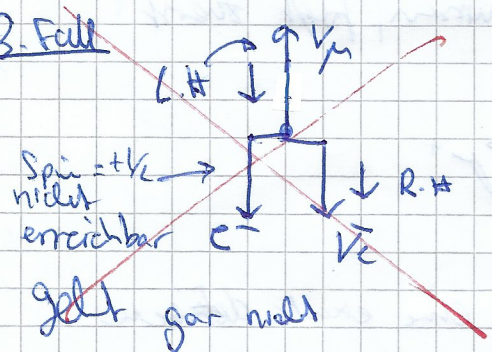 3. Fall
νμ
L.H
Spin = +1/2
nicht
erreichbar
R.H
e⁻
ν̄e
geht gar nicht